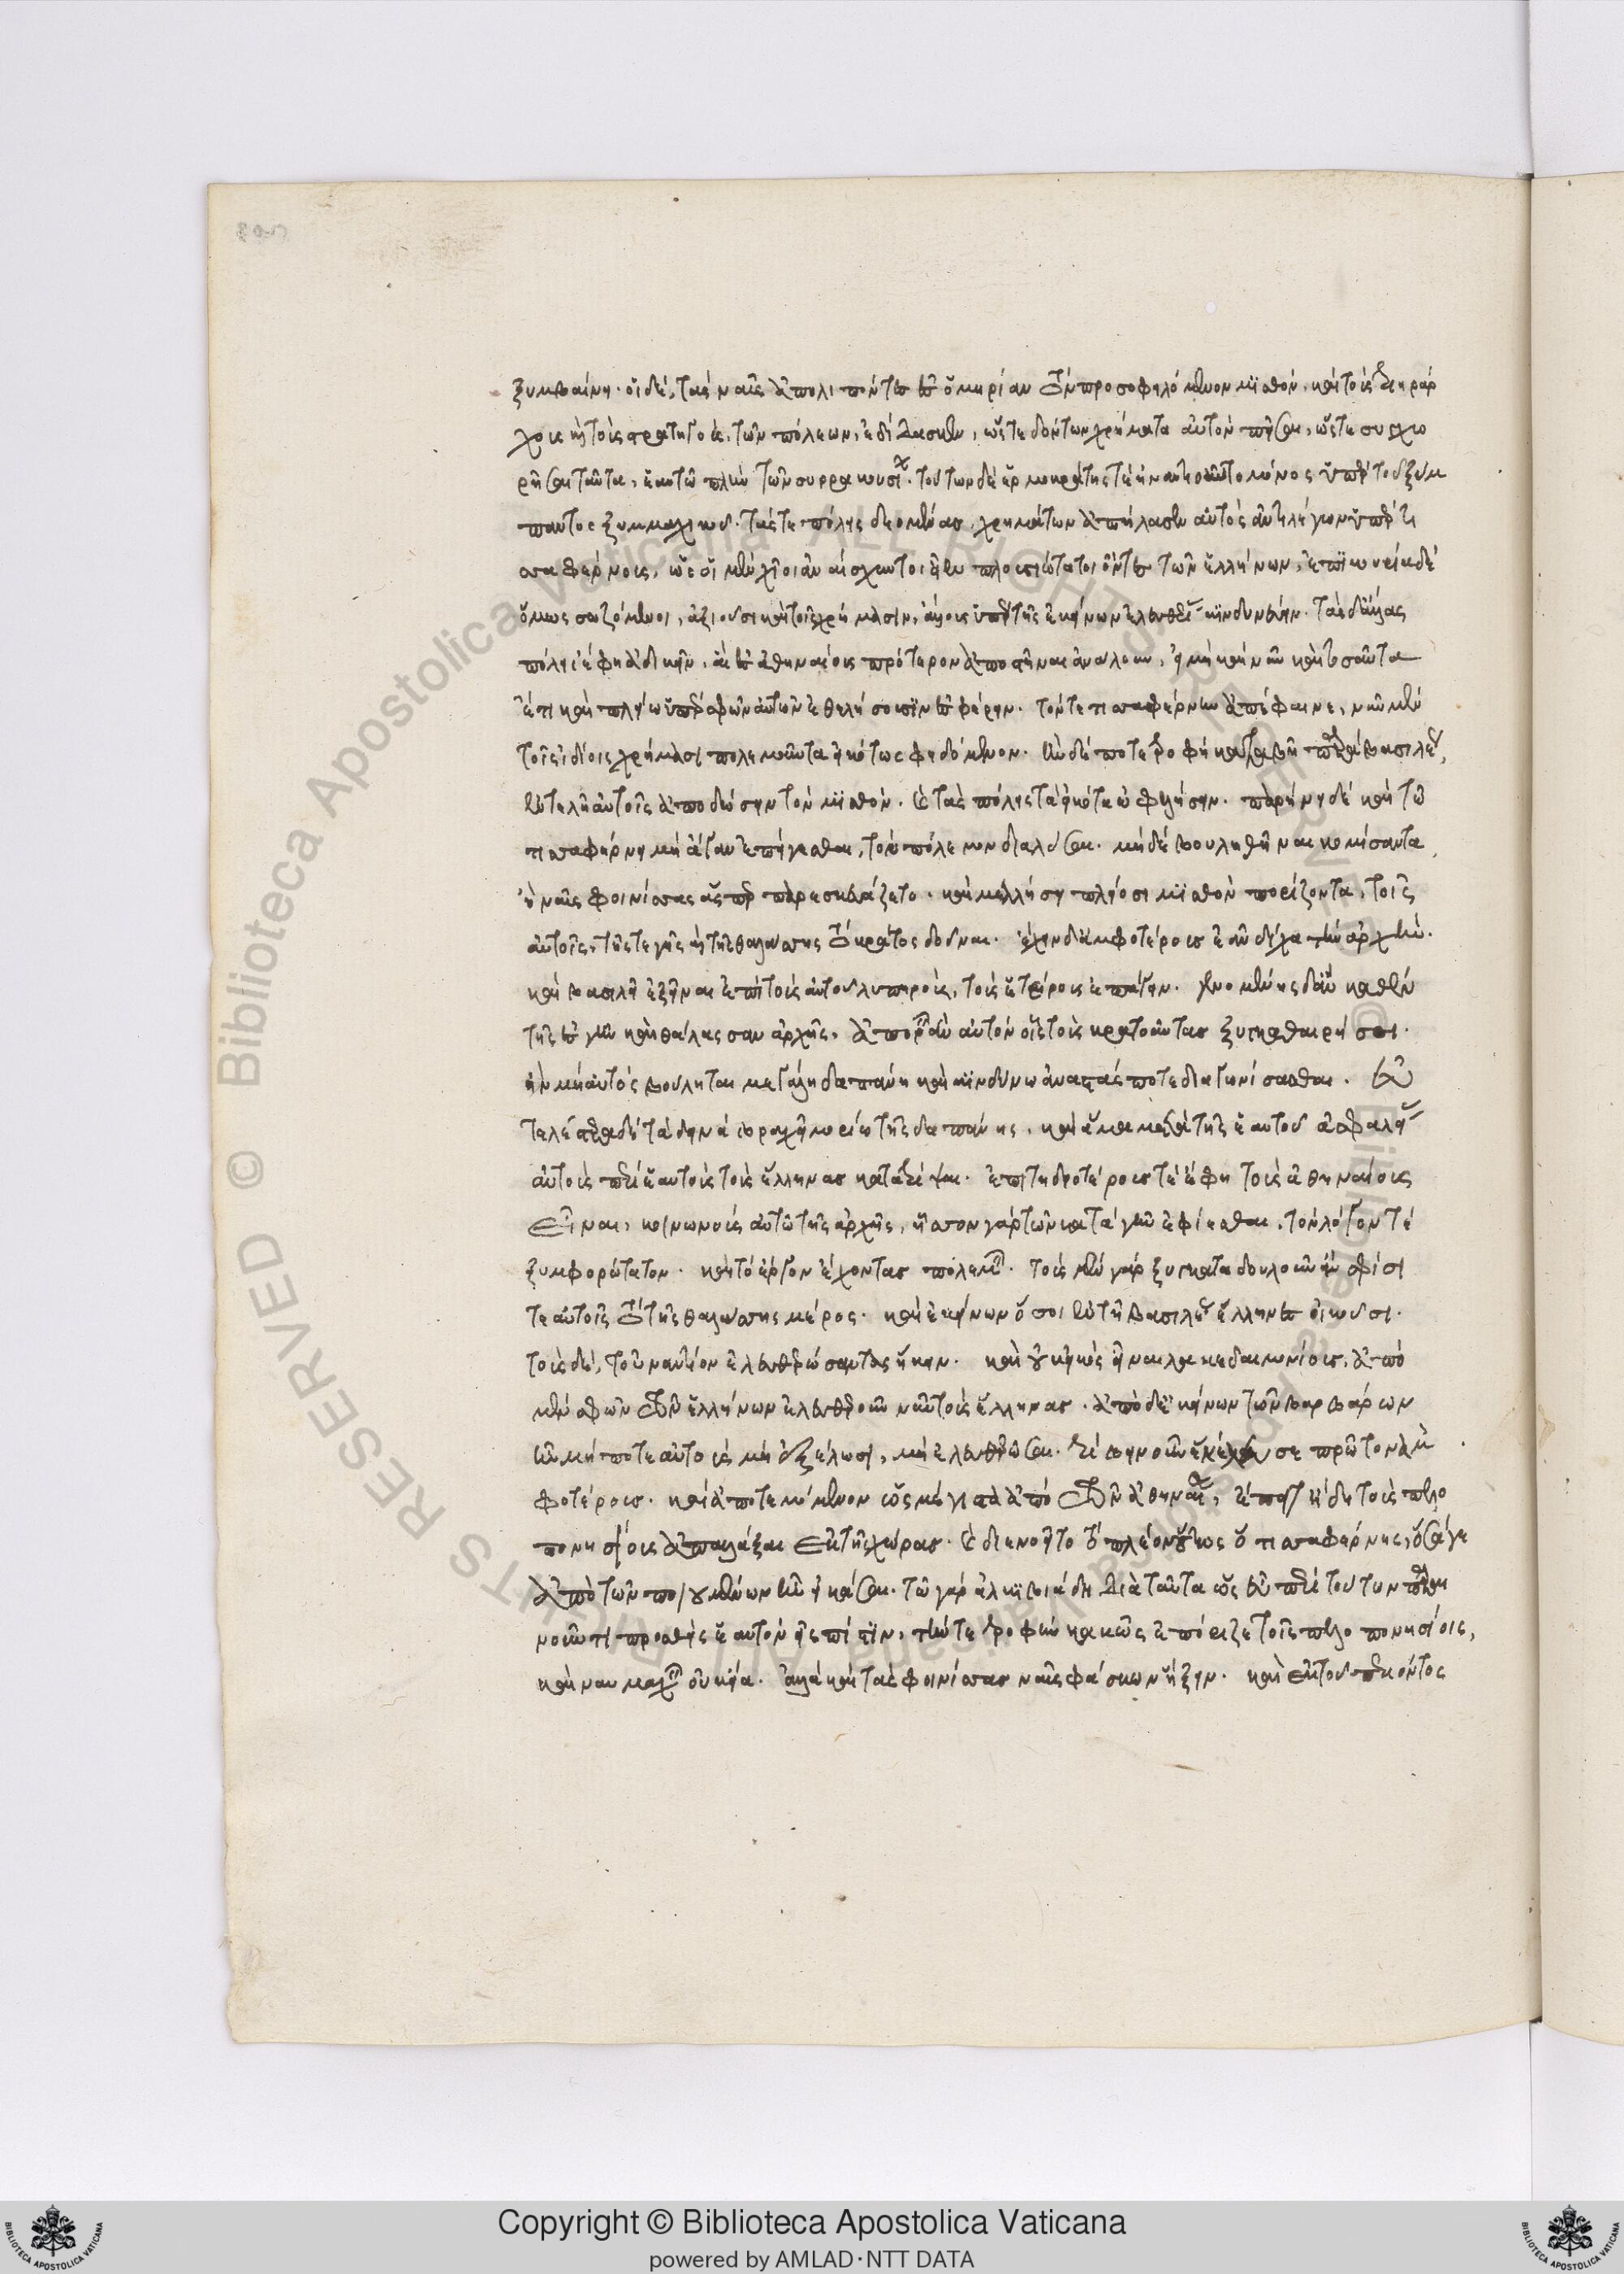 ξυμβαίνη. οἱ δὲ, τὰς ναῦς ἀπολιπόντες ἐς ὁμηρίαν τὸν προσοφειλόμενον μισθόν. καὶ τοὺς τριηράρ
χους καὶ τοὺς στρατηγοὺς, τῶν πόλεων, ἐδίδασκεν, ὥστε δόντων χρήματα αὐτὸν πεῖσαι, ὥστε συγχω
ρῆσαι ταῦτα, ἑαυτῶ πλὴν τῶν συρρακουσίων. τούτων δὲ ἑρμοκράτης τὲ ἠναντιοῦτο μόνος ὑπὲρ τοῦ ξυμ
παντος ξυμμαχικοῦ. τάς τε πόλεις δεομένας χρημάτων ἀπήλασεν αὐτὸς ἀντιλέγων ὑπὲρ τι
σσαφέρνους, ὡς οἱ μὲν χῖοι ἀναίσχυντοι εἶεν πλουσιώτατοι ὄντες τῶν ἑλλήνων, ἐπικουρία δὲ
ὅμως σωζόμενοι, ἀξιοῦσι καὶ τοῖς χρήμασιν, ἄλλους ὑπὲρ τῆς ἐκείνων ἐλευθερίας κινδυνεύειν. τὰς δ' ἄλλας
πόλεις ἔφη ἀδικεῖν, αἳ ἐς ἀθηναίους πρότερον ἀποστῆναι ἀνάλουν, εἰ μὴ καὶ νῦν καὶ τοσαῦτα
ἔτι καὶ πλείω ὑπὲρ σφῶν αὐτῶν ἐθελήσουσιν ἐσφέρειν. τόν τε τισσαφέρνην ἀπέφαινε, νῦν μὲν
τοῖς ἰδίοις χρήμασι πολεμοῦντα εἰκότως φειδόμενον. ἢν δέ ποτε τροφὴ καταβῆ παρὰ βασιλέως,
ἐντελῆ αὐτοῖς ἀποδώσειν τὸν μισθόν. καὶ τὰς πόλεις τὰ εἰκότα ὠφελήσειν. παρήνει δὲ καὶ τῶ
τισσαφέρνει μὴ ἄγαν ἐπείγεσθαι, τὸν πόλεμον διαλῦσαι. μηδὲ βουληθῆναι κομίσαντα,
ἢ ναῦς φοινίσσας ἅσπερ παρεσκευάζετο. καὶ μελλήσει πλείοσι μισθὸν πορίζοντα, τοῖς
αὐτοῖς, τῆς τε γῆς καὶ τῆς θαλάσσης τὸ κράτος δοῦναι. ἔχειν δ' ἀμφοτέρους ἐᾶν δίχα τὴν ἀρχὴν.
καὶ βασιλεῖ ἐξεῖναι ἐπὶ τοὺς αὐτοῦ λυπηροὺς, τοὺς ἑτέρους ἐπάγειν. γενομένης δ' ἂν καθ' ἓν
τῆς ἐς γῆν καὶ θάλασσαν ἀρχῆς, ἀπορεῖν ἂν αὐτὸν οἷς τοὺς κρατοῦντας ξυγκαθαιρήσει.
ἢν μὴ αὐτὸς βούληται μεγάλη δαπάνη καὶ κινδύνω ἀναστάς ποτε διαγωνίσασθαι. εὐ
τελέστερα δὲ τὰ δεινὰ βραχεῖ μορίω τῆς δαπάνης, καὶ ἅμα μετὰ τῆς ἑαυτοῦ ἀσφαλείας
αὐτοὺς περὶ ἑαυτοὺς τοὺς ἕλληνας κατατρίψαι. ἐπιτηδειοτέρους τὲ ἔφη τοὺς ἀθηναίους
εἶναι, κοινωνοὺς αὐτῶ τῆς ἀρχῆς, ἧσσον γὰρ τῶν κατὰ γῆν ἐφίεσθαι, τὸν λόγον τὲ
ξυμφορώτατον. καὶ τὸ ἔργον ἔχοντας πολεμεῖν. τοὺς μὲν γὰρ ξυγκαταδουλοῦν ἂν σφίσι
τε αὐτοῖς τὸ τῆς θαλάσσης μέρος. καὶ ἐκείνων ὅσοι ἐν τῆ βασιλέως ἕλληνες οἰκοῦσι.
τοὺς δὲ, τοὐναντίον ἐλευθερώσαντας ἥκειν. καὶ οὐκ εἰκὸς εἶναι λακεδαιμονίους, ἀπὸ
μὲν σφῶν τῶν ἑλλήνων ἐλευθεροῦν νῦν τοὺς ἕλληνας. ἀπὸ δ' ἐκείνων τῶν βαρβάρων
ἢν μή ποτε αὐτοὺς μὴ ἐξέλωσι, μὴ ἐλευθερῶσαι. τρίβειν οὖν ἐκέλευσε πρῶτον ἀμ
φοτέρους. καὶ ἀποτεμόμενον ὡς μέγιστα ἀπὸ τῶν ἀθηναίων, ἔπειτ' ἤδη τοὺς πελο
πονησίους ἀπαλλάξαι ἐκ τῆς χώρας. καὶ διενοεῖτο τὸ πλέον οὕτως ὁ τισσαφέρνης, ὅσα γε
ἀπὸ τῶν ποιουμένων ἦν εἰκάσαι. τῶ γὰρ ἀλκιβιάδη διὰ ταῦτα ὡς εὖ περὶ τούτων παραι
νοῦντι προσθεὶς ἑαυτὸν ἐς πίστιν, τήν τε τροφὴν κακῶς ἐπόριζε τοῖς πελοπονησίοις,
καὶ ναυμαχεῖν οὐκ εἴα. ἀλλὰ καὶ τὰς φοινίσσας ναῦς φάσκων ἥξειν. καὶ ἐκ τοῦ περιόντος